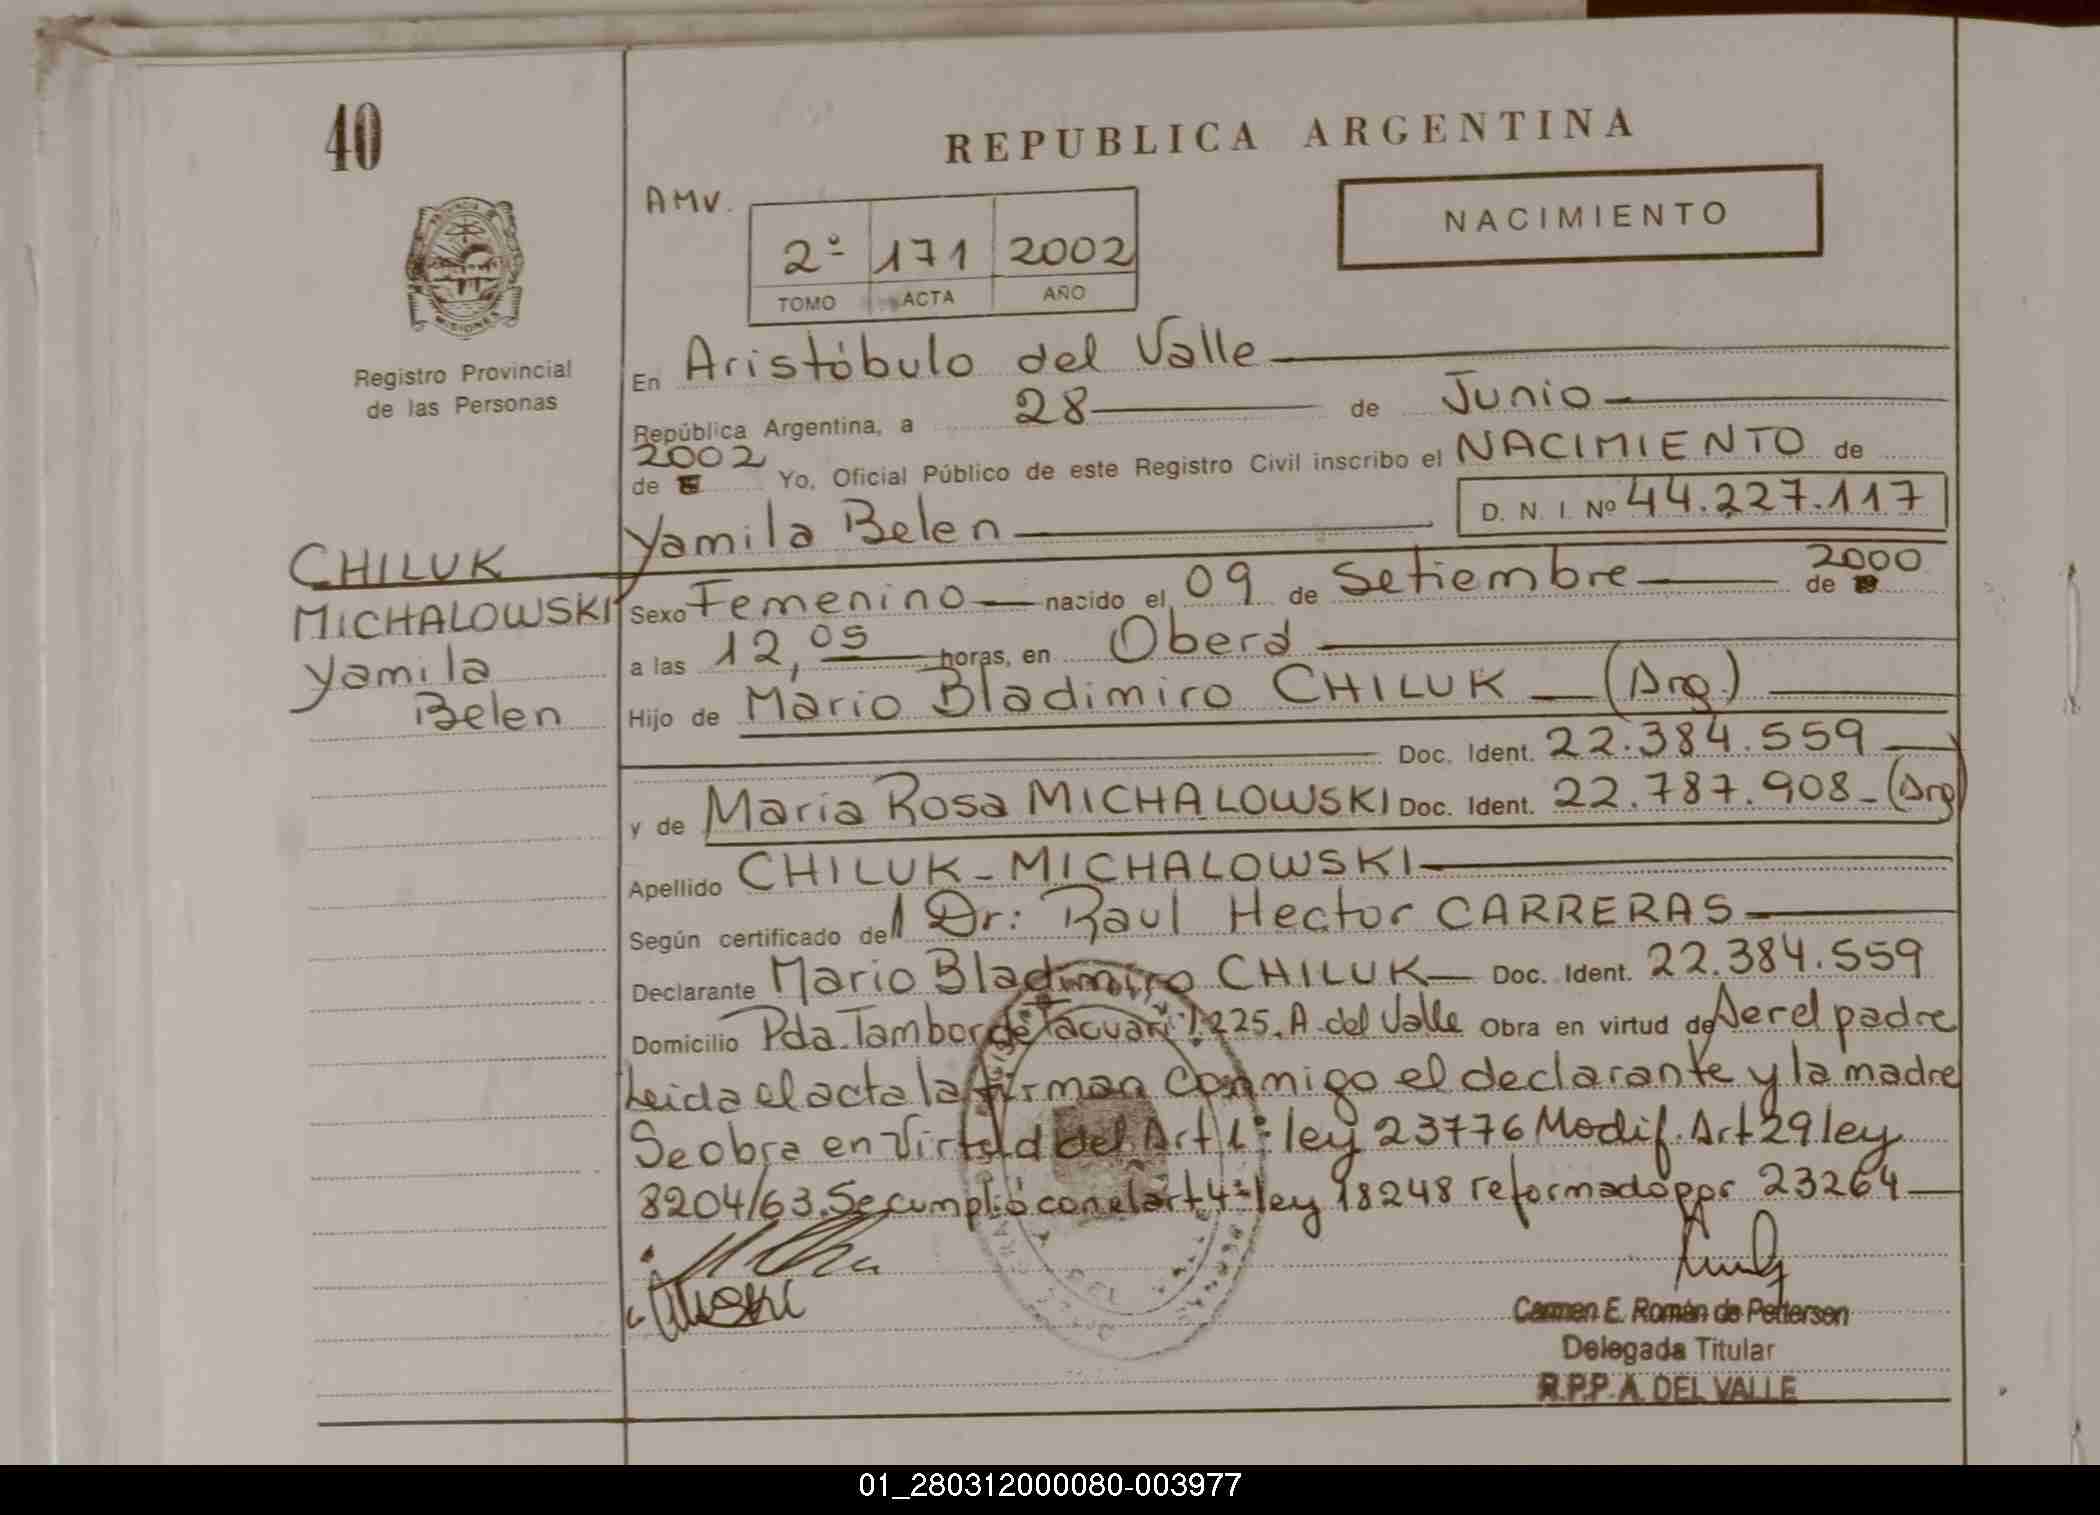 40
REPUBLICA ARGENTINA
AMV.
NACIMIENTO
2º 171 2002
TOMO ACTA AÑO
PROVINCIA DE
MISIONES
Registro Provincial
de las Personas
En Aristóbulo del Valle
República Argentina, a 28 de Junio
2002
de Yo, Oficial Público de este Registro Civil inscribo el NACIMIENTO de
D. N. I. Nº 44.227.117
Yamila Belen
CHILUK
MICHALOWSKI
Yamila
Belen
Sexo Femenino nacido el 09 de Setiembre de 2000
a las 12,05 horas, en Oberá
Hijo de Mario Bladimiro CHILUK (Arg.)
Doc. Ident. 22.384.559
y de Maria Rosa MICHALOWSKI Doc. Ident. 22.787.908 - (Arg)
Apellido CHILUK - MICHALOWSKI
Según certificado del Dr: Raul Hector CARRERAS
Declarante Mario Bladimiro CHILUK Doc. Ident. 22.384.559
Domicilio Pda. Tambor de Tacuari 1.225. A. del Valle Obra en virtud de ser el padre
Leida el acta la firman conmigo el declarante y la madre
Se obra en virtud del Art 1º ley 23776 Modif. Art 29 ley
8204/63. Se cumplió con el art 4º ley 18248 reformado por 23264
Carmen E. Román de Pettersen
Delegada Titular
R.P.P. A. DEL VALLE
01_280312000080-003977